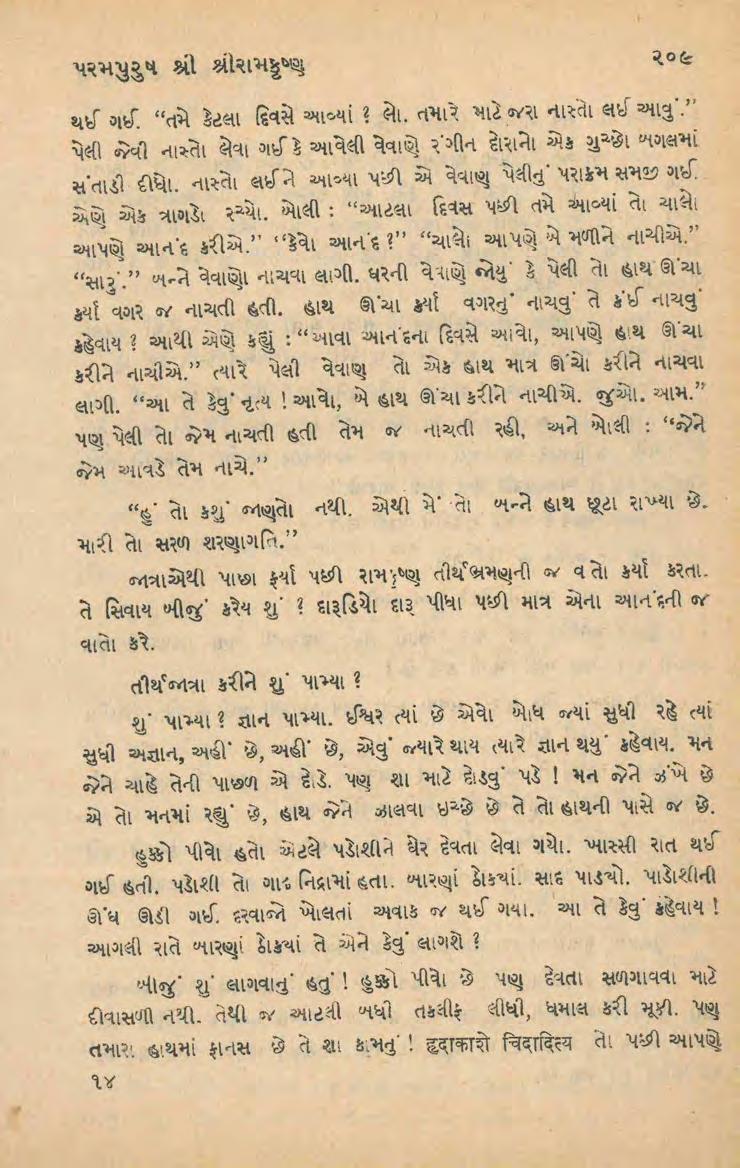 પરમપુરુષ શ્રી શ્રીરામકૃષ્ણ
૨૦૯
થઈ ગઈ. “તમે કેટલા દિવસે આવ્યાં ? લો. તમારે માટે જરા નાસ્તો લઈ આવું.”
પેલી જેવી નાસ્તો લેવા ગઈ કે આવેલી વેવાણે રંગીન દોરાનો એક ગુચ્છો બગલમાં
સંતાડી દીધો. નાસ્તો લઈને આવ્યા પછી એ વેવાણ પેલીનું પરાક્રમ સમજી ગઈ.
એણે એક ત્રાગડો રચ્યો. બોલી : “આટલા દિવસ પછી તમે આવ્યાં તો ચાલો
આપણે આનંદ કરીએ.” “કેવો આનંદ ?” “ચાલો આપણે બે મળીને નાચીએ.”
“સારું.” બન્ને વેવાણો નાચવા લાગી. ઘરની વેવાણે જોયું કે પેલી તો હાથ ઊંચા
કર્યા વગર જ નાચતી હતી. હાથ ઊંચા કર્યા વગરનું નાચવું તે કંઈ નાચવું
કહેવાય ? આથી એણે કહ્યું : “આવા આનંદના દિવસે આવો, આપણે હાથ ઊંચા
કરીને નાચીએ.” ત્યારે પેલી વેવાણ તો એક હાથ માત્ર ઊંચો કરીને નાચવા
લાગી. “આ તે કેવું નૃત્ય ! આવો, બે હાથ ઊંચા કરીને નાચીએ. જુઓ. આમ.”
પણ પેલી તો જેમ નાચતી હતી તેમ જ નાચતી રહી, અને બોલી : “જેને
જેમ આવડે તેમ નાચે.”
“હું તો કશું જાણતો નથી. એથી મેં તો બન્ને હાથ છૂટા રાખ્યા છે.
મારી તો સરળ શરણાગતિ.”
જાત્રાએથી પાછા ફર્યા પછી રામકૃષ્ણ તીર્થભ્રમણની જ વાતો કર્યા કરતા.
તે સિવાય બીજું કરેય શું ? દારૂડિયો દારૂ પીધા પછી માત્ર એના આનંદની જ
વાતો કરે.
તીર્થજાત્રા કરીને શું પામ્યા ?
શું પામ્યા ? જ્ઞાન પામ્યા. ઈશ્વર ત્યાં છે એવો બોધ જ્યાં સુધી રહે ત્યાં
સુધી અજ્ઞાન, અહીં છે, અહીં છે, એવું જ્યારે થાય ત્યારે જ્ઞાન થયું કહેવાય. મન
જેને ચાહે તેની પાછળ એ દોડે. પણ શા માટે દોડવું પડે ! મન જેને ઝંખે છે
એ તો મનમાં રહ્યું છે, હાથ જેને ઝાલવા ઇચ્છે છે તે તો હાથની પાસે જ છે.
હુક્કો પીવો હતો એટલે પડોશીને ઘેર દેવતા લેવા ગયો. ખાસ્સી રાત થઈ
ગઈ હતી. પડોશી તો ગાઢ નિદ્રામાં હતા. બારણાં ઠોક્યાં. સાદ પાડ્યો. પાડોશીની
ઊંઘ ઊડી ગઈ. દરવાજો ખોલતાં અવાક જ થઈ ગયા. આ તે કેવું કહેવાય !
આગલી રાતે બારણાં ઠોક્યાં તે એને કેવું લાગશે ?
બીજું શું લાગવાનું હતું ! હુક્કો પીવો છે પણ દેવતા સળગાવવા માટે
દીવાસળી નથી. તેથી જ આટલી બધી તકલીફ લીધી, ધમાલ કરી મૂકી. પણ
તમારા હાથમાં ફાનસ છે તે શા કામનું ! हृदाकाशे चिदादित्य તો પછી આપણે
૧૪